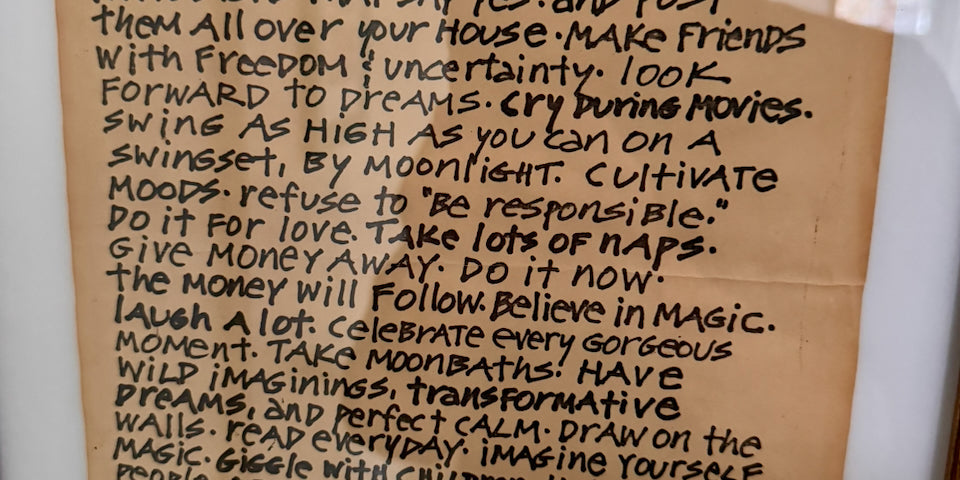 them All over your House. MAKE Friends
with FreeDOM & uncertainty. look
FORWARD to DreAMS. Cry During Movies.
swing AS HIGH AS you can on A
swingset, By Moonlight. Cultivate
MOODS. refuse to "Be responsible."
Do it For love. TAKe lots OF nAps.
Give Money AWAY. Do it now.
the Money will Follow. Believe in MAGic.
lAugh A lot. CeleBrATe every GorGeous
Moment. TAKe MoonBAThs. HAve
wilD iMAGinings, transForMAtive
DreAMs, and perfect CALM. DrAW on the
WAlls. reAD everyDAY. iMAGine YourselF
MAGic. Giggle with
people